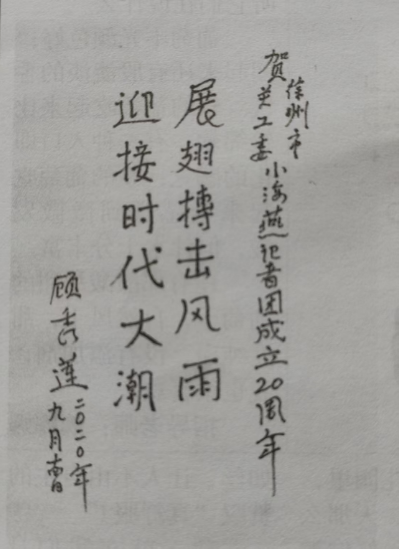 贺徐州市关工委小海燕记者团成立20周年
展翅搏击风雨
迎接时代大潮
顾秀莲
二〇二〇年
九月書